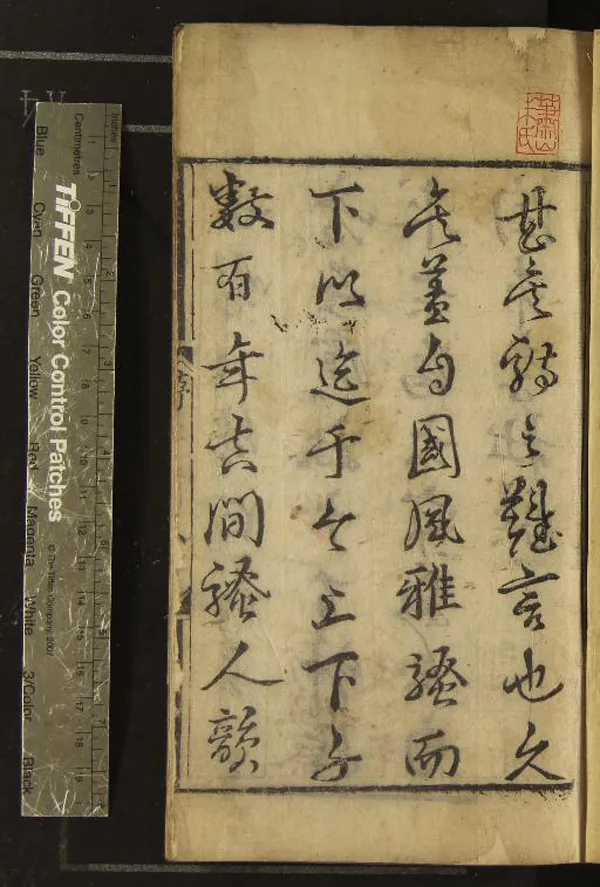 甚矣詩之難言也久
矣蓋自國風雅騷而
下以迄于今上下千
數百年其間騷人韻
序
蕭山
氏
Inches
1 2 3 4 5 6 7
Centimetres
1 2 3 4 5 6 7 8 9 10 11 12 13 14 15 16 17 18 19
TIFFEN Color Control Patches
© The Tiffen Company, 2007
Blue Cyan Green Yellow Red Magenta White 3/Color Black